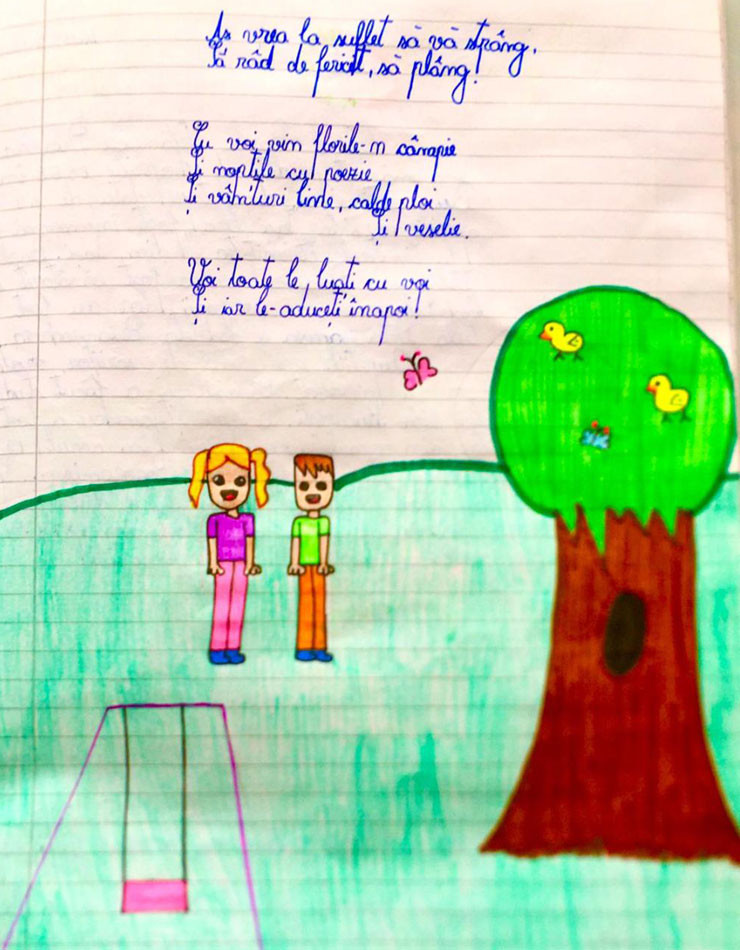 Aș vrea la suflet să vă strâng,
Să râd de fericit, să plâng!
Cu voi vin florile-n câmpie
Și nopțile cu poezie
Și vânturi line, calde ploi
Și veselie.
Voi toate le luați cu voi
Și iar le-aduceți înapoi!